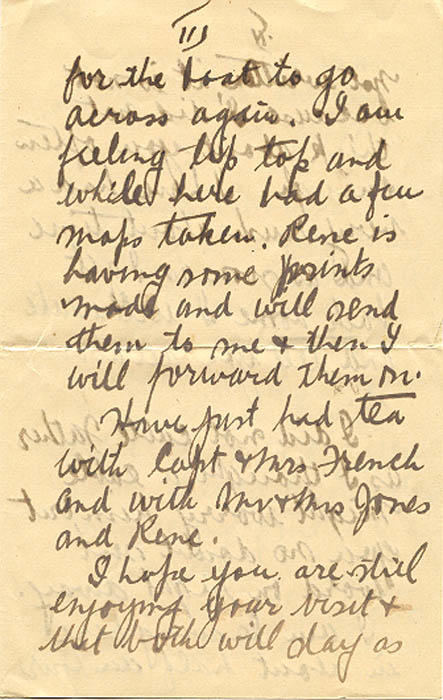 III
for the boat to go
across again. I am
feeling tip top and
while here had a few
snaps taken. Rene is
having some prints
made and will send
them to me & then I
will forward them on.
Have just had tea
with Capt & Mrs French
and with Mr & Mrs Jones
and Rene.
I hope you are still
enjoying your visit &
that both will day as